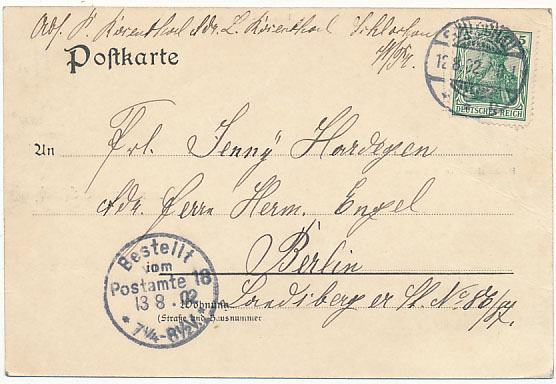 Abs. P. Rosenthal Adr. L. Rosenthal, Schlochau
W/Pr.
Postkarte
12.8.02
5
DEUTSCHES REICH
An Frl. Jenny Hardegen
Adr. Herrn Herm. Engel
Berlin
Wohnung Landsberger St. No 86/87.
(Straße und Hausnummer
Bestellt
vom
Postamte 18
13 8 . 02
* 7¼-8½V. *